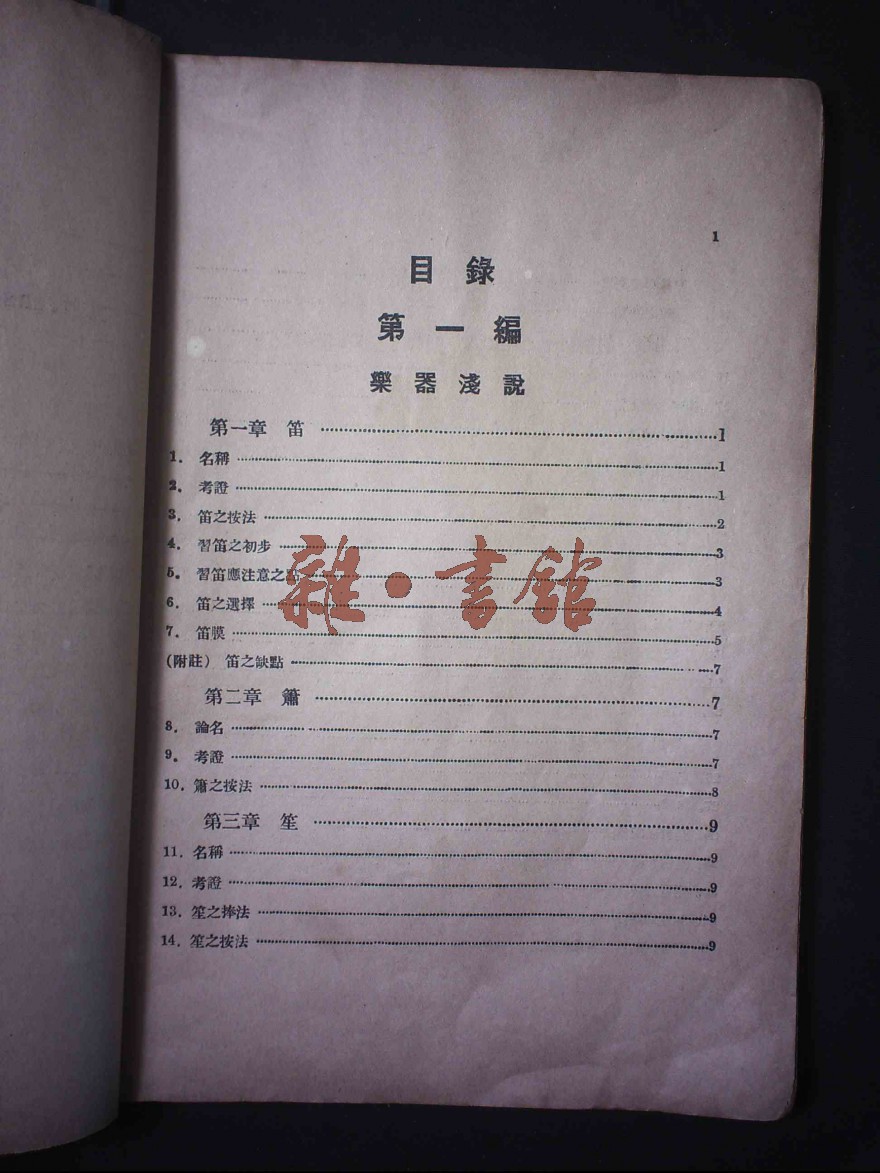 1
目錄
第一編
樂器淺說
第一章 笛 ........ 1
1. 名稱 ........ 1
2. 考證 ........ 1
3. 笛之按法 ........ 2
4. 習笛之初步 ........ 3
5. 習笛應注意之點 ........ 3
6. 笛之選擇 ........ 4
7. 笛膜 ........ 5
(附註) 笛之缺點 ........ 7
第二章 簫 ........ 7
8. 論名 ........ 7
9. 考證 ........ 7
10. 簫之按法 ........ 8
第三章 笙 ........ 9
11. 名稱 ........ 9
12. 考證 ........ 9
13. 笙之捧法 ........ 9
14. 笙之按法 ........ 9
雜·書館